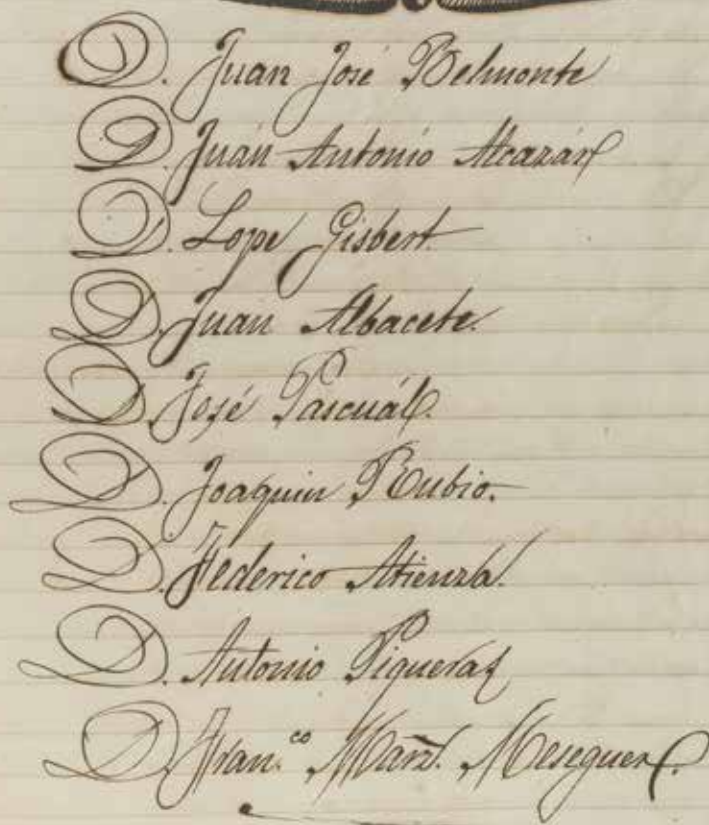 D. Juan José Belmonte
D. Juán Antonio Alcazár
D. Lope Gisbert.
D. Juan Albacete.
D. José Pascuál.
D. Joaquin Rubio.
D. Federico Atienza.
D. Antonio Piqueras
D. Fran.co Meseguer.